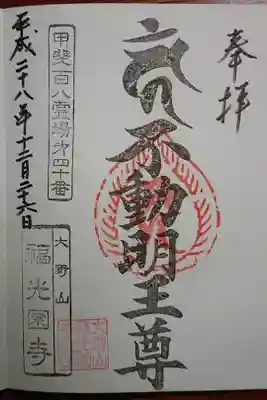 奉拝
不動明王尊
甲斐百八霊場第四十番
大野山
福光園寺
平成二十八年十二月二十六日